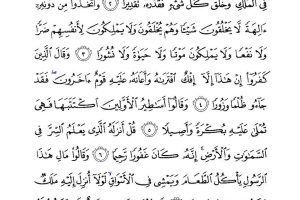 فِى ٱلْمُلْكِ وَخَلَقَ كُلَّ شَىْءٍ فَقَدَّرَهُۥ تَقْدِيرًا ٢ وَٱتَّخَذُوا۟ مِن دُونِهِۦٓ
ءَالِهَةً لَّا يَخْلُقُونَ شَيْـًٔا وَهُمْ يُخْلَقُونَ وَلَا يَمْلِكُونَ لِأَنفُسِهِمْ ضَرًّا
وَلَا نَفْعًا وَلَا يَمْلِكُونَ مَوْتًا وَلَا حَيَوٰةً وَلَا نُشُورًا ٣ وَقَالَ ٱلَّذِينَ
كَفَرُوٓا۟ إِنْ هَـٰذَآ إِلَّآ إِفْكٌ ٱفْتَرَىٰهُ وَأَعَانَهُۥ عَلَيْهِ قَوْمٌ ءَاخَرُونَ ۖ فَقَدْ
جَآءُو ظُلْمًا وَزُورًا ٤ وَقَالُوٓا۟ أَسَـٰطِيرُ ٱلْأَوَّلِينَ ٱكْتَتَبَهَا فَهِىَ
تُمْلَىٰ عَلَيْهِ بُكْرَةً وَأَصِيلًا ٥ قُلْ أَنزَلَهُ ٱلَّذِى يَعْلَمُ ٱلسِّرَّ فِى
ٱلسَّمَـٰوَٰتِ وَٱلْأَرْضِ ۚ إِنَّهُۥ كَانَ غَفُورًا رَّحِيمًا ٦ وَقَالُوا۟ مَالِ هَـٰذَا
ٱلرَّسُولِ يَأْكُلُ ٱلطَّعَامَ وَيَمْشِى فِى ٱلْأَسْوَاقِ ۙ لَوْلَآ أُنزِلَ إِلَيْهِ مَلَكٌ